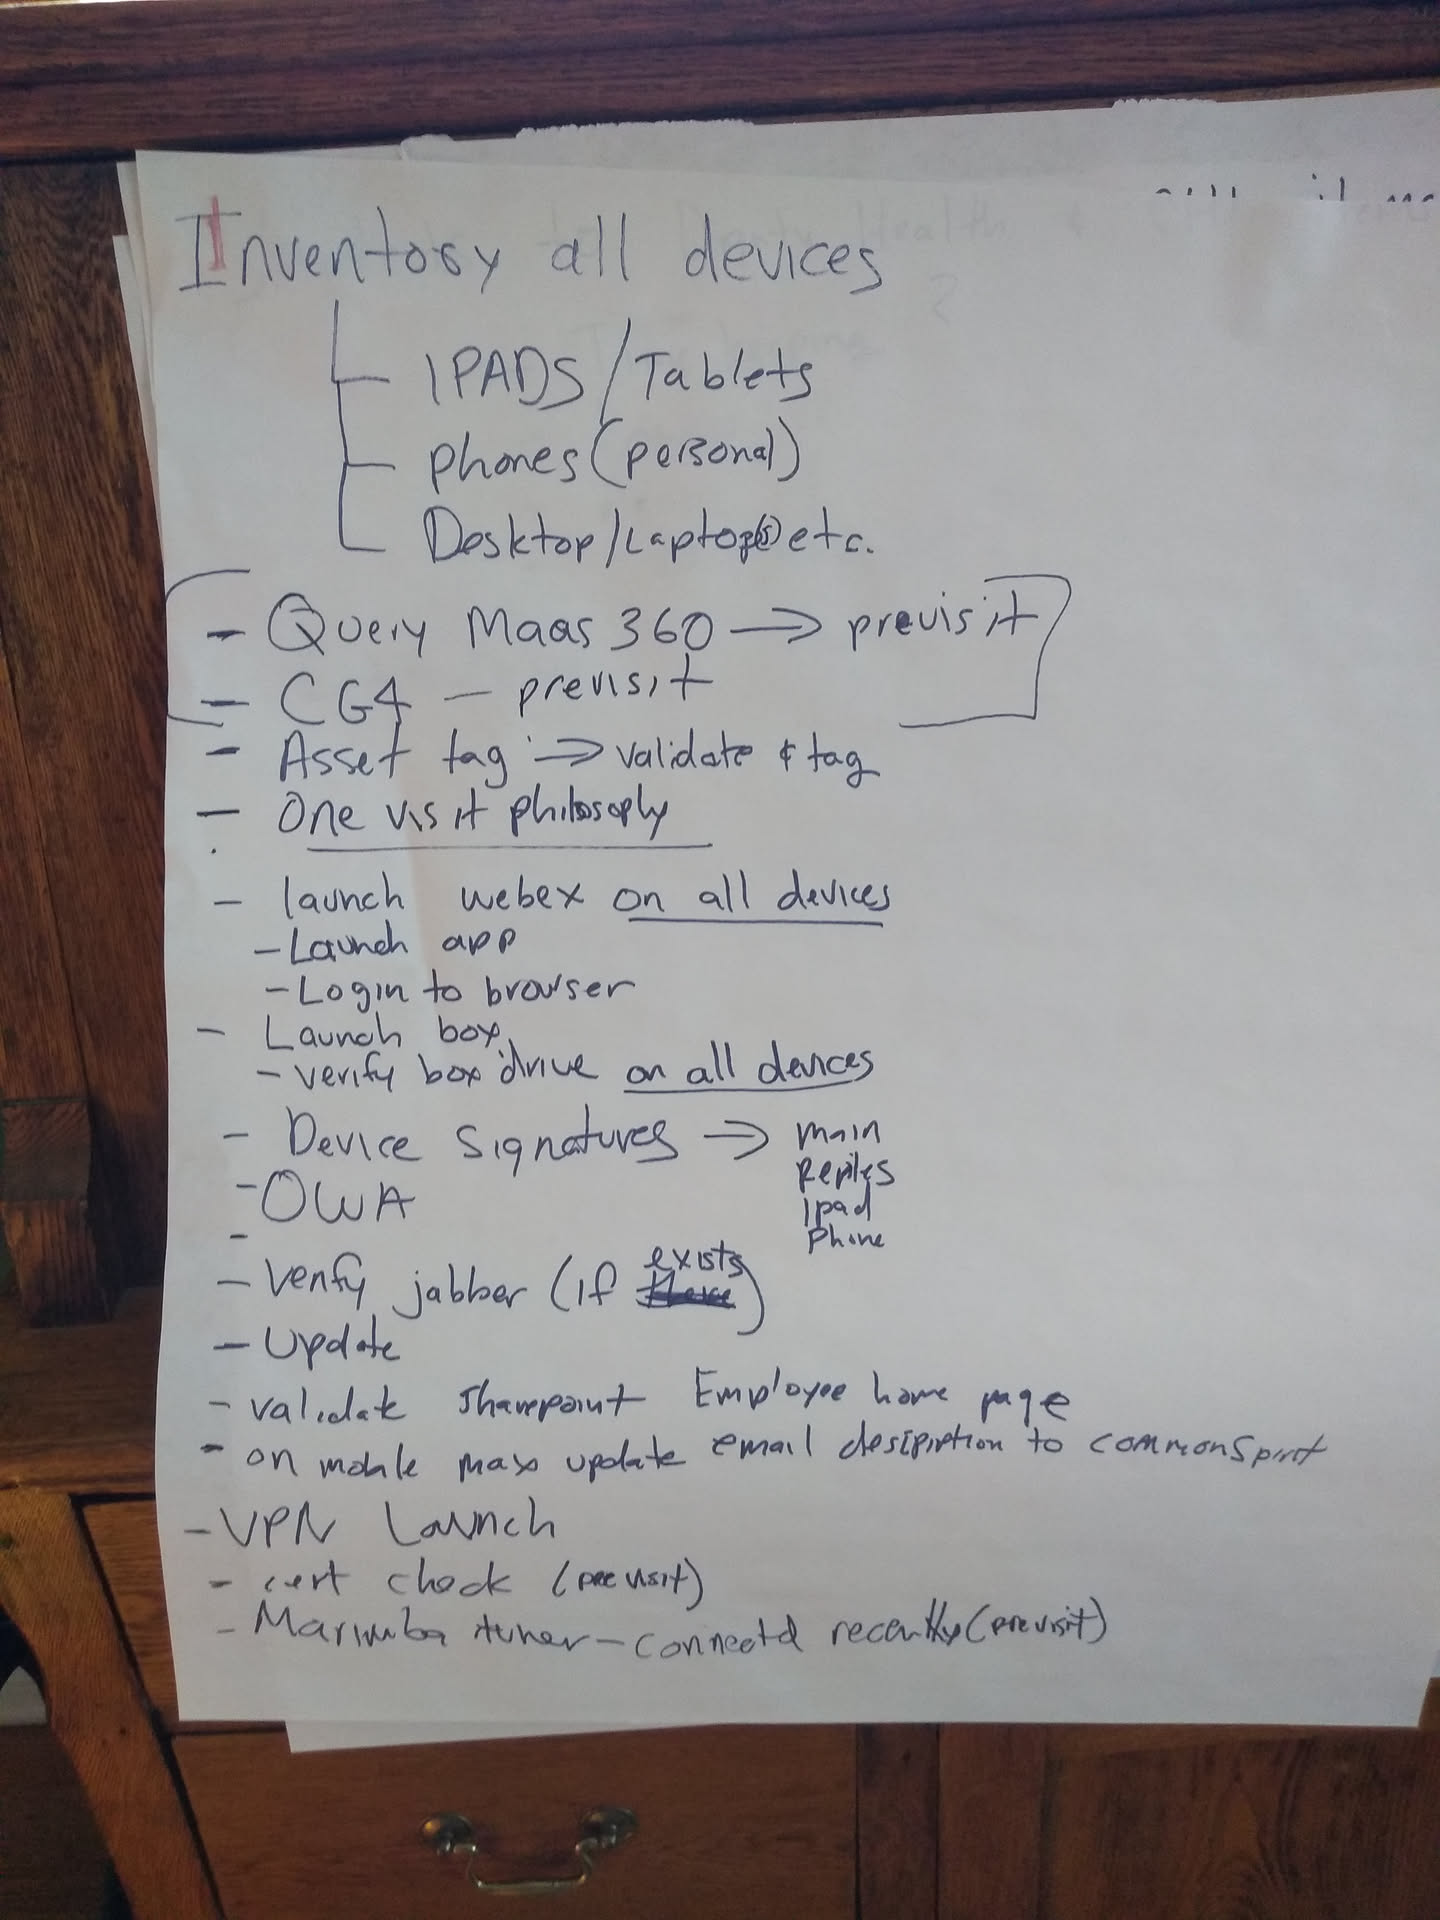 Inventory all devices
IPADS/Tablets
phones (personal)
Desktop/Laptop(s) etc.
- Query Maas 360 → previsit
- CG4 - previsit
- Asset tag → validate & tag
- One visit philosophy
- launch webex on all devices
- Launch app
- Login to browser
- Launch box
- verify box drive on all devices
- Device Signatures → main
Replies
Ipad
Phone
- OWA
-
- Verify jabber (if exists)
- Update
- validate Sharepoint Employee home page
- on mobile update email to commonSpirit
- VPN Launch
- cert check (previsit)
- Marimba tuner - connectd recently (previsit)